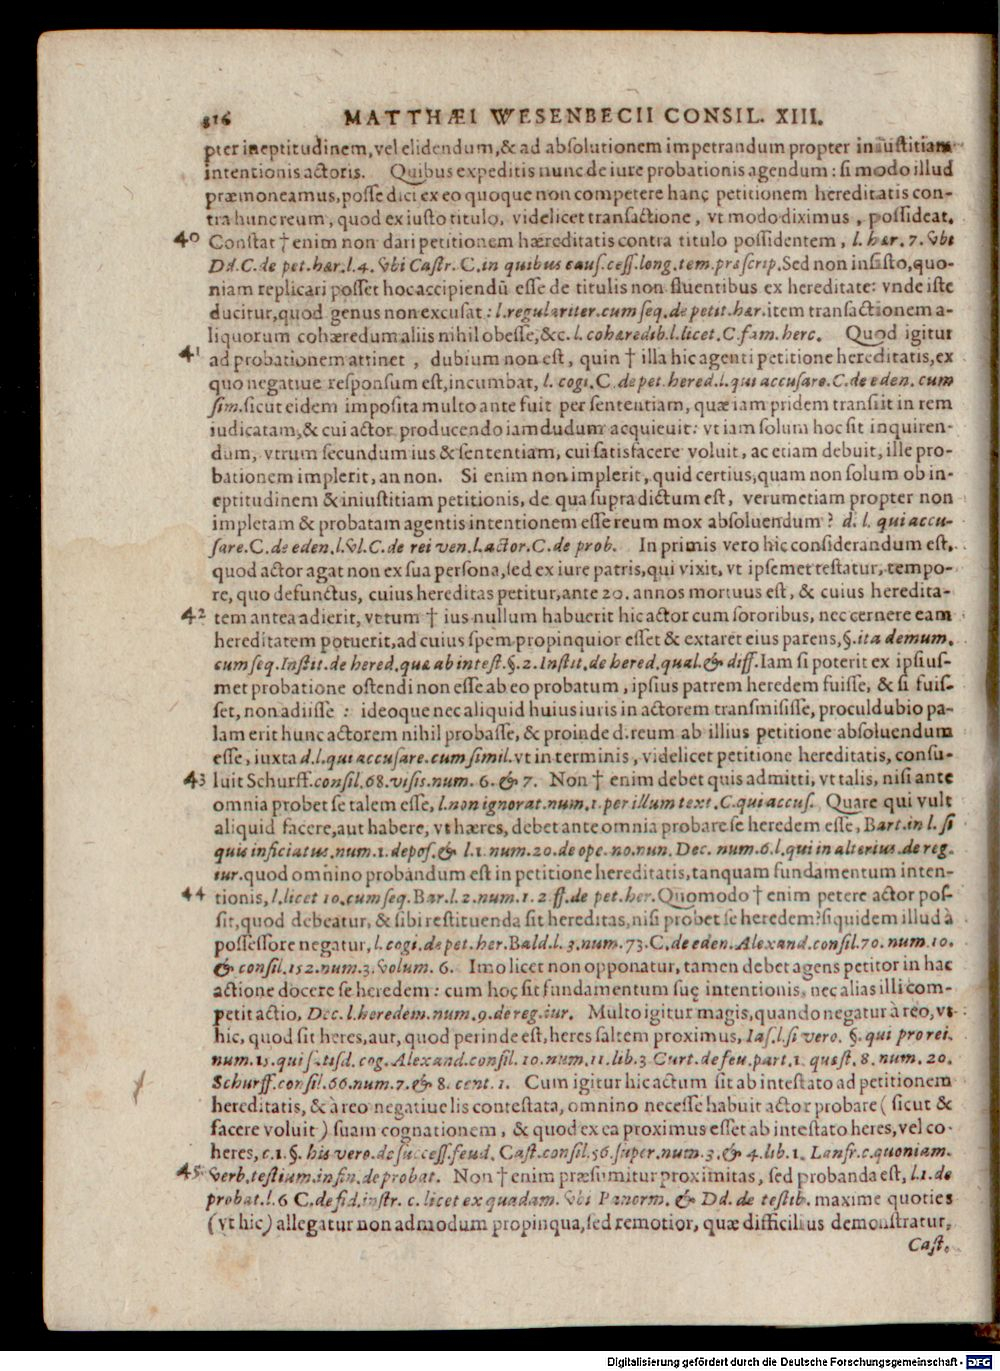 816 MATTHÆI WESENBECII CONSIL. XIII.
pter ineptitudinem, vel elidendum, & ad absolutionem impetrandum propter iniustitiam
intentionis actoris. Quibus expeditis nunc de iure probationis agendum: si modo illud
præmoneamus, posse dici ex eo quoque non competere hanc petitionem hereditatis con-
tra hunc reum, quod ex iusto titulo, videlicet transactione, vt modo diximus, possideat.
40 Constat † enim non dari petitionem hæreditatis contra titulo possidentem, l. hær. 7. vbi
Dd. C. de pet. hær. l. 4. vbi Castr. C. in quibus caus. cess. long. tem. præscrip. Sed non insisto, quo-
niam replicari posset hoc accipiendū esse de titulis non fluentibus ex hereditate: vnde iste
ducitur, quod genus non excusat: l. regulariter. cum seq. de petit. hær. item transactionem a-
liquorum cohæredum aliis nihil obesse, &c. l. cohæredib. l. licet. C. fam. herc. Quod igitur
41 ad probationem attinet, dubium non est, quin † illa hic agenti petitione hereditatis, ex
quo negatiue responsum est, incumbat, l. cogi. C. de pet. hered. l. qui accusare. C. de eden. cum
sim. sicut eidem imposita multo ante fuit per sententiam, quæ iam pridem transiit in rem
iudicatam, & cui actor producendo iamdudum acquieuit: vt iam solum hoc sit inquiren-
dum, vtrum secundum ius & sententiam, cui satisfacere voluit, ac etiam debuit, ille pro-
bationem implerit, an non. Si enim non implerit, quid certius, quam non solum ob in-
eptitudinem & iniustitiam petitionis, de qua supra dictum est, verumetiam propter non
impletam & probatam agentis intentionem esse reum mox absoluendum? d. l. qui accu-
sare. C. de eden. l. vl. C. de rei ven. l. actor. C. de prob. In primis vero hic considerandum est,
quod actor agat non ex sua persona, sed ex iure patris, qui vixit, vt ipsemet testatur, tempo-
re, quo defunctus, cuius hereditas petitur, ante 20. annos mortuus est, & cuius heredita-
42 tem antea adierit, vt tum † ius nullum habuerit hic actor cum sororibus, nec cernere eam
hereditatem potuerit, ad cuius spem propinquior esset & extaret eius parens, §. ita demum.
cum seq. Instit. de hered. quæ ab intest. §. 2. Instit. de hered. qual. & diff. Iam si poterit ex ipsius-
met probatione ostendi non esse ab eo probatum, ipsius patrem heredem fuisse, & si fuis-
set, non adiisse: ideoque nec aliquid huius iuris in actorem transmisisse, proculdubio pa-
lam erit hunc actorem nihil probasse, & proinde d. reum ab illius petitione absoluendum
esse, iuxta d. l. qui accusare. cum simil. vt in terminis, videlicet petitione hereditatis, consu-
43 luit Schurff. consil. 68. visis. num. 6. & 7. Non † enim debet quis admitti, vt talis, nisi ante
omnia probet se talem esse, l. non ignorat. num. 1. per illum text. C. qui accus. Quare qui vult
aliquid facere, aut habere, vt hæres, debet ante omnia probare se heredem esse, Bart. in l. si
quis inficiatus. num. 1. depos. & l. 1. num. 20. de ope. no. nun. Dec. num. 6. l. qui in alterius. de reg.
iur. quod omnino probandum est in petitione hereditatis, tanquam fundamentum inten-
44 tionis, l. licet 10. cum seq. Bar. l. 2. num. 1. 2. ff. de pet. her. Quomodo † enim petere actor pos-
sit, quod debeatur, & sibi restituenda sit hereditas, nisi probet se heredem? siquidem illud à
possessore negatur, l. cogi. de pet. her. Bald. l. 3. num. 73. C. de eden. Alexand. consil. 70. num. 10.
& consil. 152. num. 3. volum. 6. Imo licet non opponatur, tamen debet agens petitor in hac
actione docere se heredem: cum hoc sit fundamentum suę intentionis, nec alias illi com-
petit actio, Dec. l. heredem. num. 9. de reg. iur. Multo igitur magis, quando negatur à reo, vt
hic, quod sit heres, aut, quod perinde est, heres saltem proximus, Ias. l. si vero. §. qui pro rei.
num. 15. qui satisd. cog. Alexand. consil. 10. num. 11. lib. 3 Curt. de feu. part. 1. quæst. 8. num. 20.
Schurff. consil. 66. num. 7. & 8. cent. 1. Cum igitur hic actum sit ab intestato ad petitionem
hereditatis, & à reo negatiue lis contestata, omnino necesse habuit actor probare (sicut &
facere voluit) suam cognationem, & quod ex ea proximus esset ab intestato heres, vel co-
heres, c. 1. §. his vero. de success. feud. Cast. consil. 56. super. num. 3. & 4. lib. 1. Lanfr. c. quoniam.
45 verb. testium. in fin. de probat. Non † enim præsumitur proximitas, sed probanda est, l. 1. de
probat. l. 6 C. de fid. instr. c. licet ex quadam. vbi Panorm. & Dd. de testib. maxime quoties
(vt hic) allegatur non admodum propinqua, sed remotior, quæ difficilius demonstratur,
Cast.
Digitalisierung gefördert durch die Deutsche Forschungsgemeinschaft - DFG